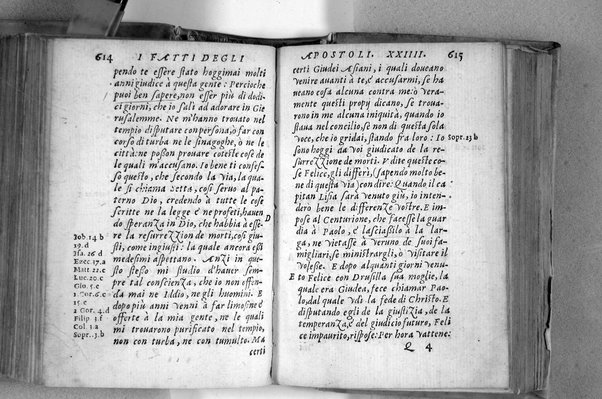 614 I FATTI DEGLI
pendo te essere stato hoggimai molti
anni giudice à questa gente: Percioche
puoi ben sapere, non esser piu di dodi
ci giorni, che io salì ad adorare in Gie
rusalemme. Ne mi hanno trouato nel
tempio disputare con persona, ò far con
corso di turba ne le sinagoghe, ò ne le
città: ne posson prouare coteste cose de
le quali m'accusano. Io bene ti confes-
so questo, che secondo la via, la qua-
le si chiama setta, cosi seruo al pa-
terno Dio, credendo à tutte le cose
scritte ne la legge è ne profeti, hauen
do speranza in Dio, che habbia à esse-
re la resurrezzion de morti, cosi giu-
sti, come ingiusti: la quale ancora essi
medesimi aspettano. Anzi in que-
sto stesso mi studio d'hauer sem-
pre tal conscienza, che io non offen-
da mai ne Iddio, ne gli huomini. E
dopo piu anni venni à far limosine è
offerte à la mia gente, ne le quali
mi trouarono purificato nel tempio,
non con turba, ne con tumulto. Ma
certi
D
Iob. 14 b
19. d
Isa. 26 d
Ezec. 17. a
Matt. 22. c
Luc. 20. c
Gio. 5. c
1 Cor. 6. c
15. c
1 Cor. 4. d
Filip. 3. f
Col. 1. a
Sopr. 23. b
APOSTOLI. XXIIII. 615
certi Giudei Asiani, i quali doueano
venire auanti à te, è accusarmi, se ha
ueano cosa alcuna contra me: ò vera-
mente questi proprij dicano, se troua-
rono in me alcuna iniquità, quando io
staua nel concilio, se non di questa sola
voce, che io gridai, stando fra loro: Io
sono hoggi da voi giudicato de la re-
surrezzione de morti. Vdite queste co-
se Felice, gli differì, (sapendo molto be-
ne di questa via) con dire: Quando il ca
pitan Lisia sarà venuto giù, io inten-
derò bene le differenze vostre. E im-
pose al Centurione, che facesse la guar
dia à Paolo, è lasciasselo à la lar-
ga, ne vietasse à veruno de suoi fa-
migliari, se ministrargli, ò visitare il
volesse. E dopo alquanti giorni venu-
to Felice con Drusilla sua moglie, la
quale era Giudea, fece chiamar Pao-
lo, dal quale vdì la fede di Christo. E
disputando egli de la giustizia, de la
temperanza, è del giudicio futuro, Feli
ce impaurito, rispose: Per hora vattene:
Sopr. 23 b
E
Q 4